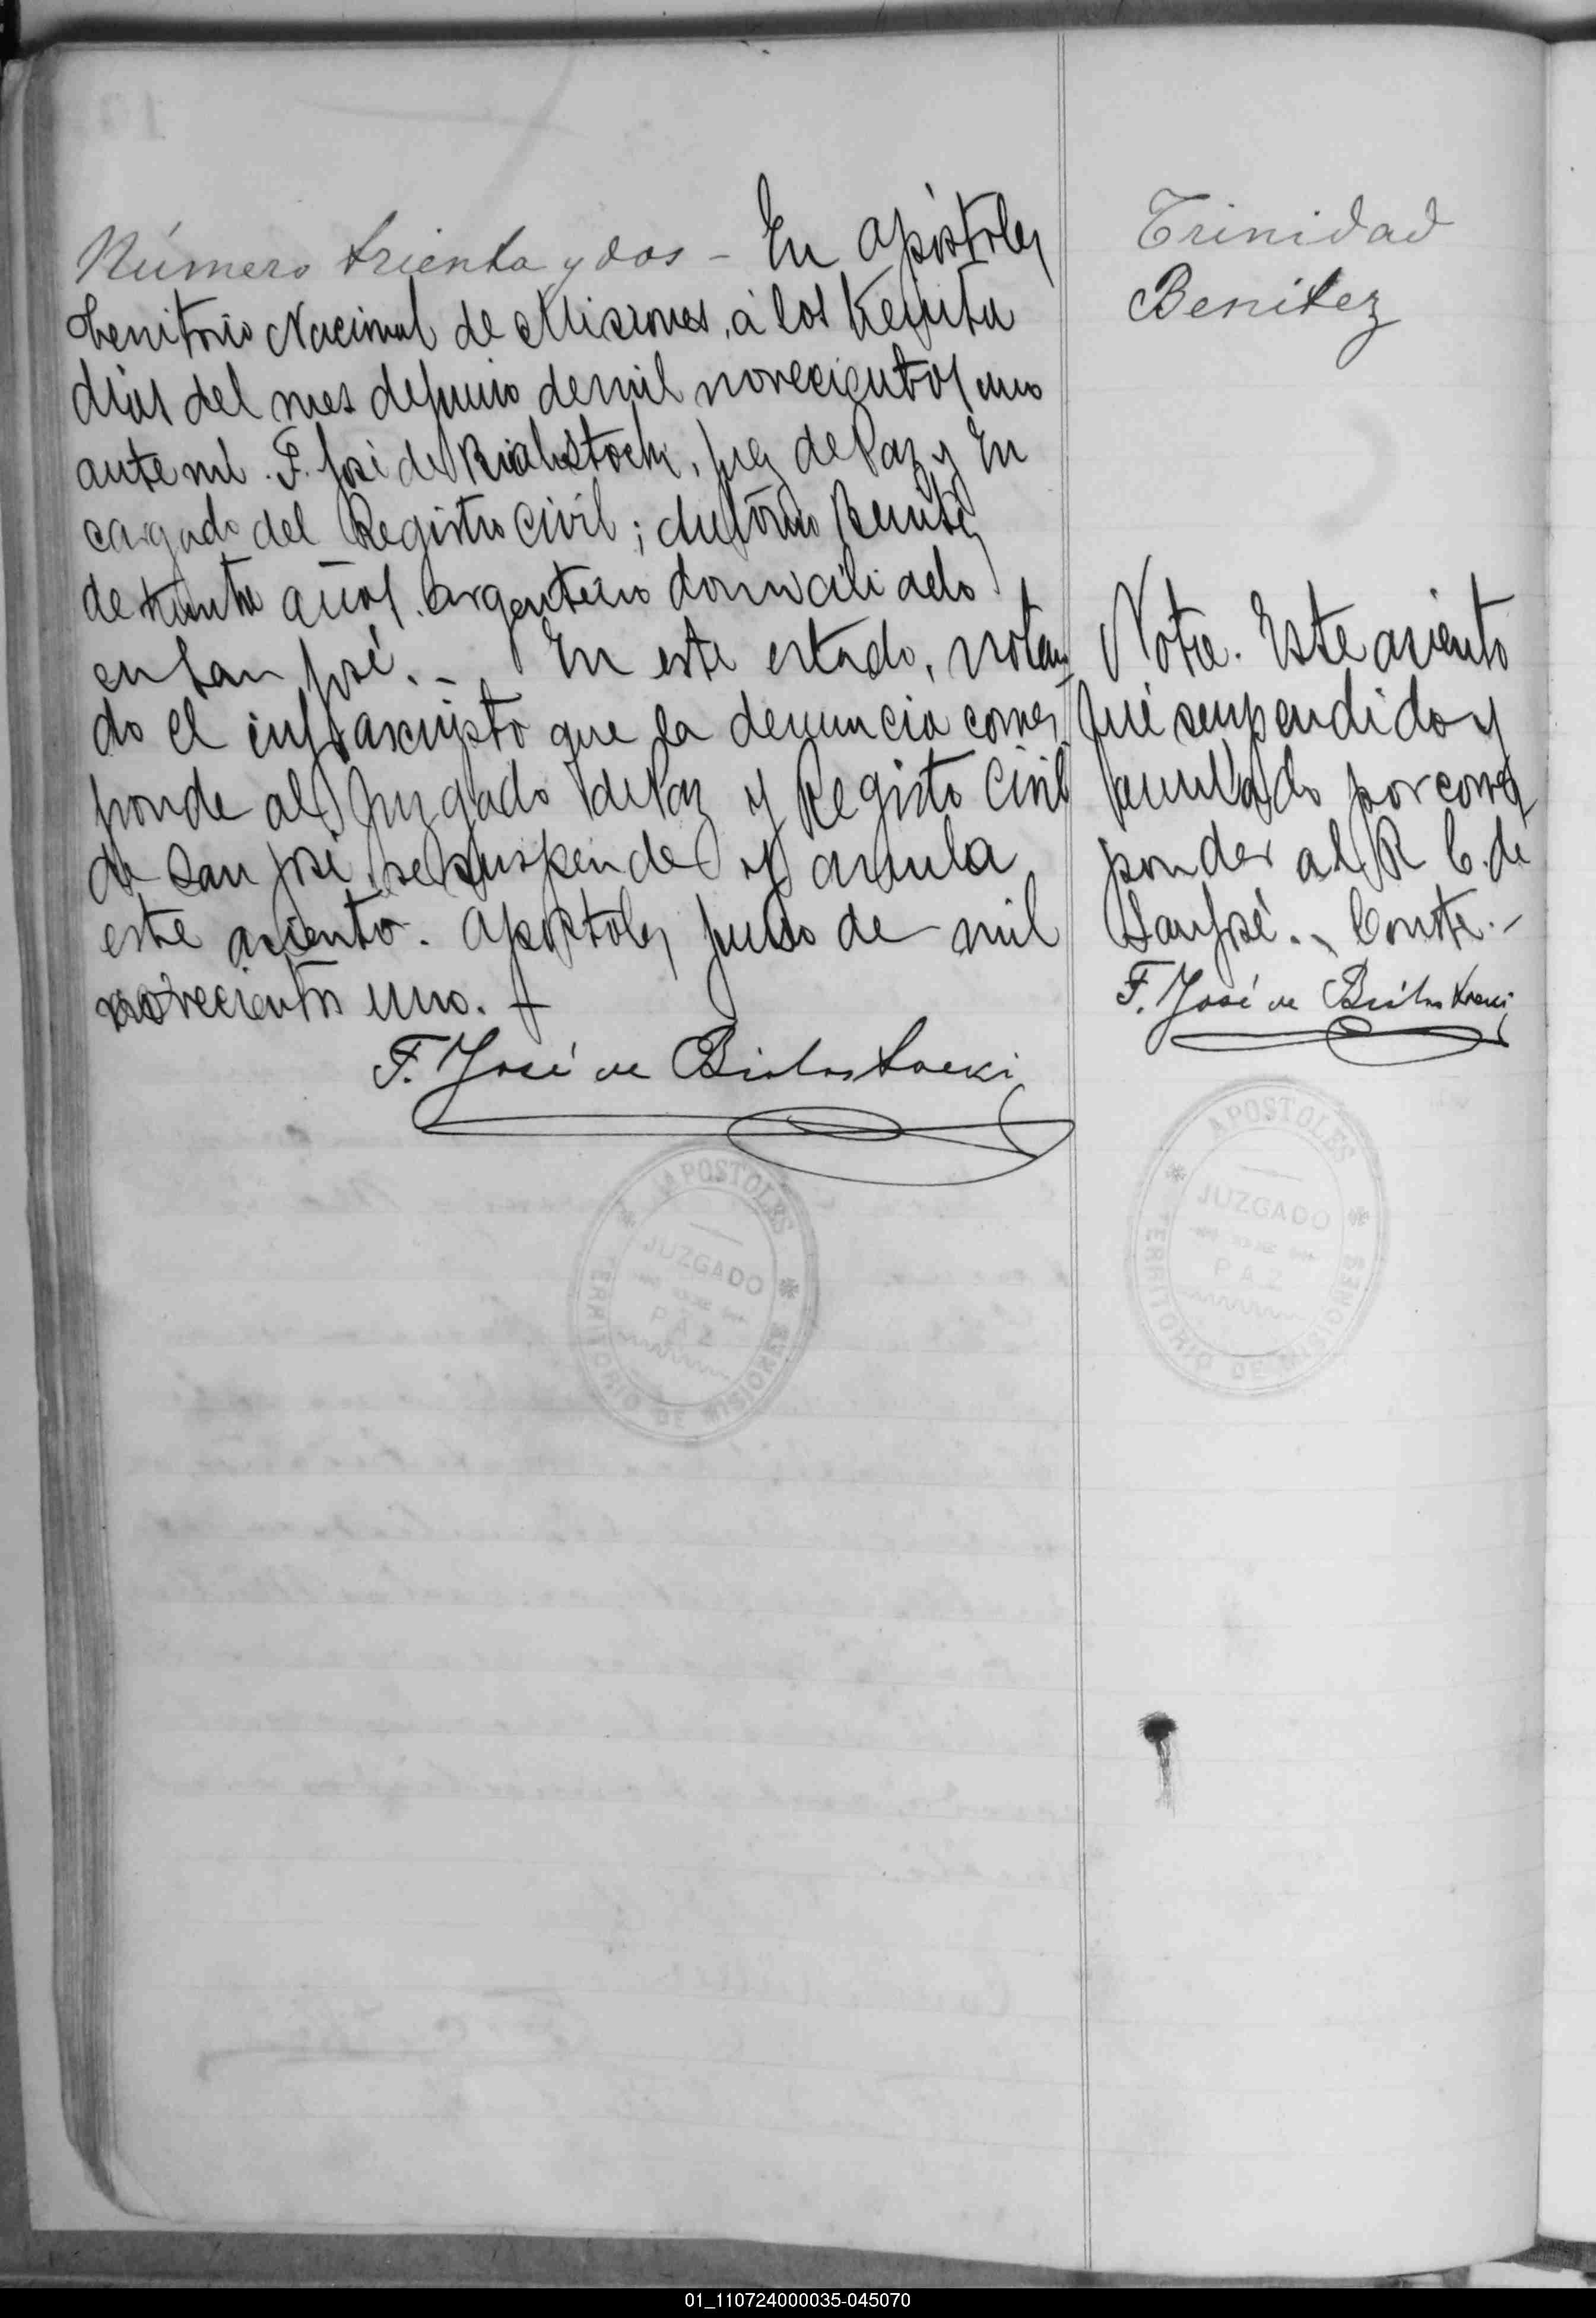 Número trienta y dos - En Apóstoles
Territorio Nacional de Misiones, á los treinta
dias del mes de Junio de mil novecientos uno
ante mi F. José de Bialostocki, Juez de Paz y En
cargado del Registro Civil; Antonio Benitez
de treinta años argentino domiciliado
en San José. - En este estado, notan
do el infrascripto que la denuncia corres
ponde al Juzgado de Paz y Registro Civil
de San José, se suspende y anula
este asiento. Apostoles, Junio de mil
novecientos uno. -
F. José de Bialostocki
Trinidad
Benitez
Nota. Este asiento
fué suspendido y
anulado por corres
ponder al R C. de
San José. - Conste. -
F. José de Bialostocki
APOSTOLES
JUZGADO
PAZ
TERRITORIO DE MISIONES
APOSTOLES
JUZGADO
PAZ
TERRITORIO DE MISIONES
01_110724000035-045070